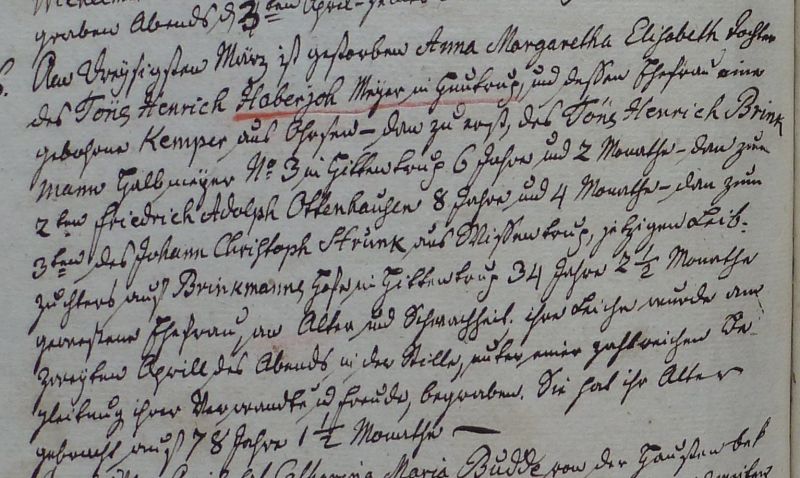 graben Abends d 3ten April
Am Dreysigsten März ist gestorben Anna Margaretha Elisabeth Tochter
des Töns Henrich Haberjoh Meyer in Huntrup, und dessen Ehefrau eine
gebohrne Kemper aus Ohrsen – dan zu erst, des Töns Henrich Brink
mann Halbmeyer No 3 in Hittentrup 6 Jahre und 2 Monathe – dan zum
2ten Friedrich Adolph Ottenhausen 8 Jahre und 4 Monathe – dan zum
3ten des Johann Christoph Strunk aus Wissentrup, jetzigen Leib-
züchters auf Brinkmanns Hofe in Hittentrup 34 Jahre 2 1/2 Monathe
gewesene Ehefrau, an Alter und Schwachheit. ihre Leiche wurde am
zweyten Aprill des Abends in der Stille, unter einer zahlreichen Be-
gleitung ihrer Verwandte u Freude, begraben. Sie hat ihr Alter
gebracht auf 78 Jahre 1 1/2 Monathe —
Catherina Maria Budde von der Hausten bek